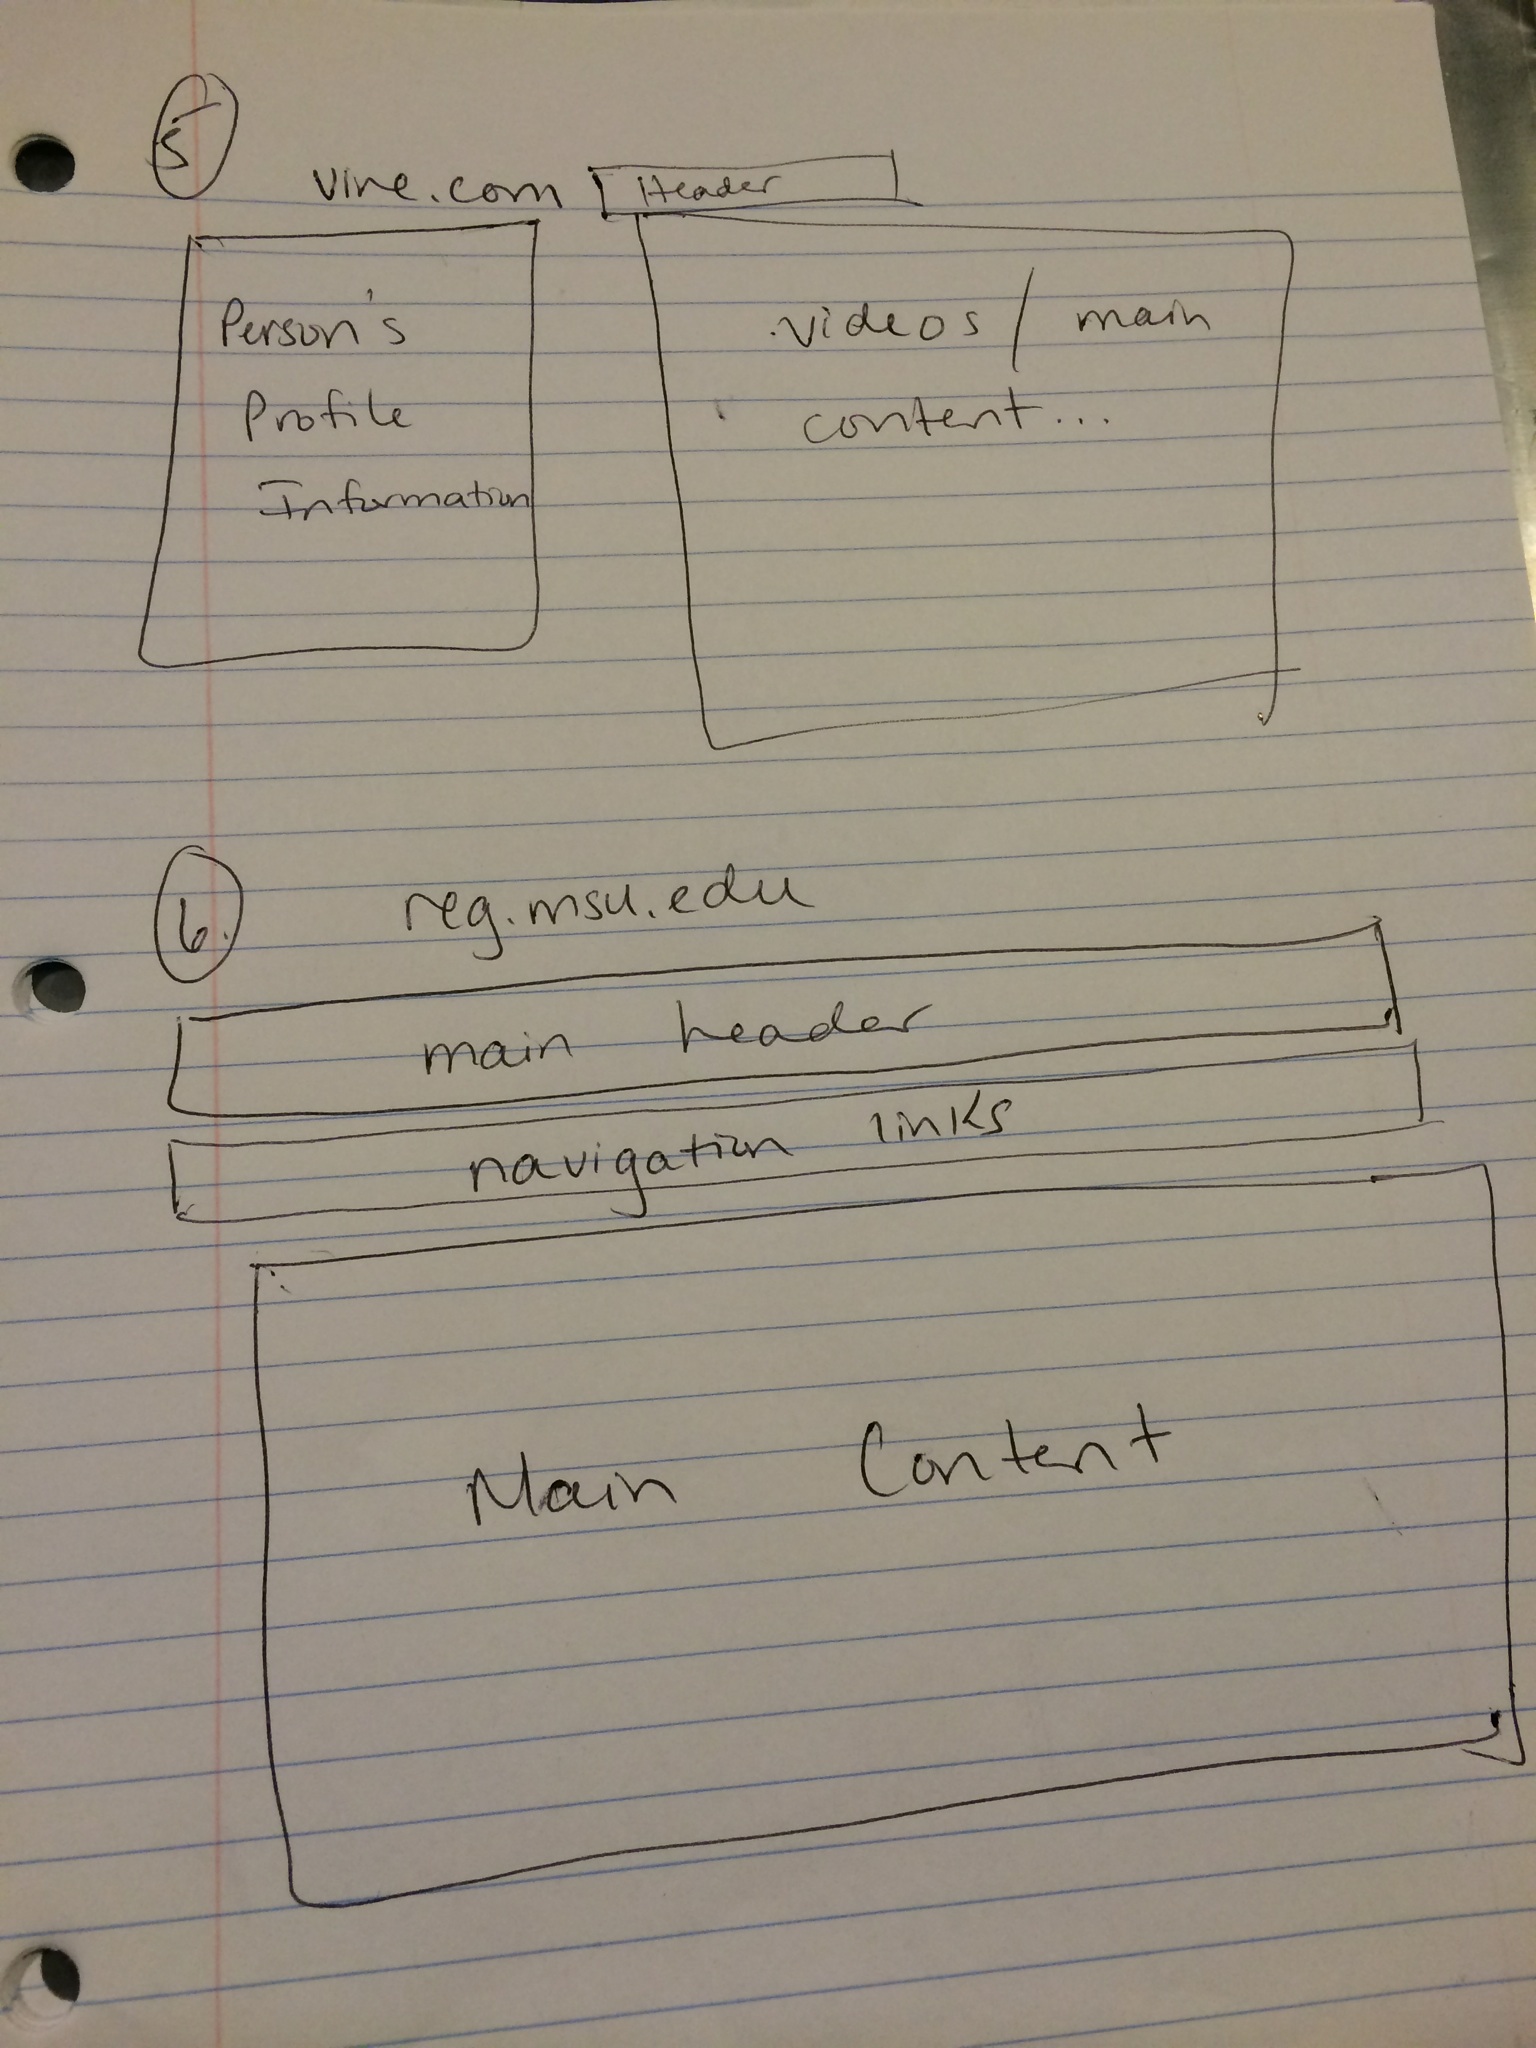 5
vine.com Header
Person's
Profile
Information
videos / main
content...
6.
reg.msu.edu
main header
navigation links
Main Content